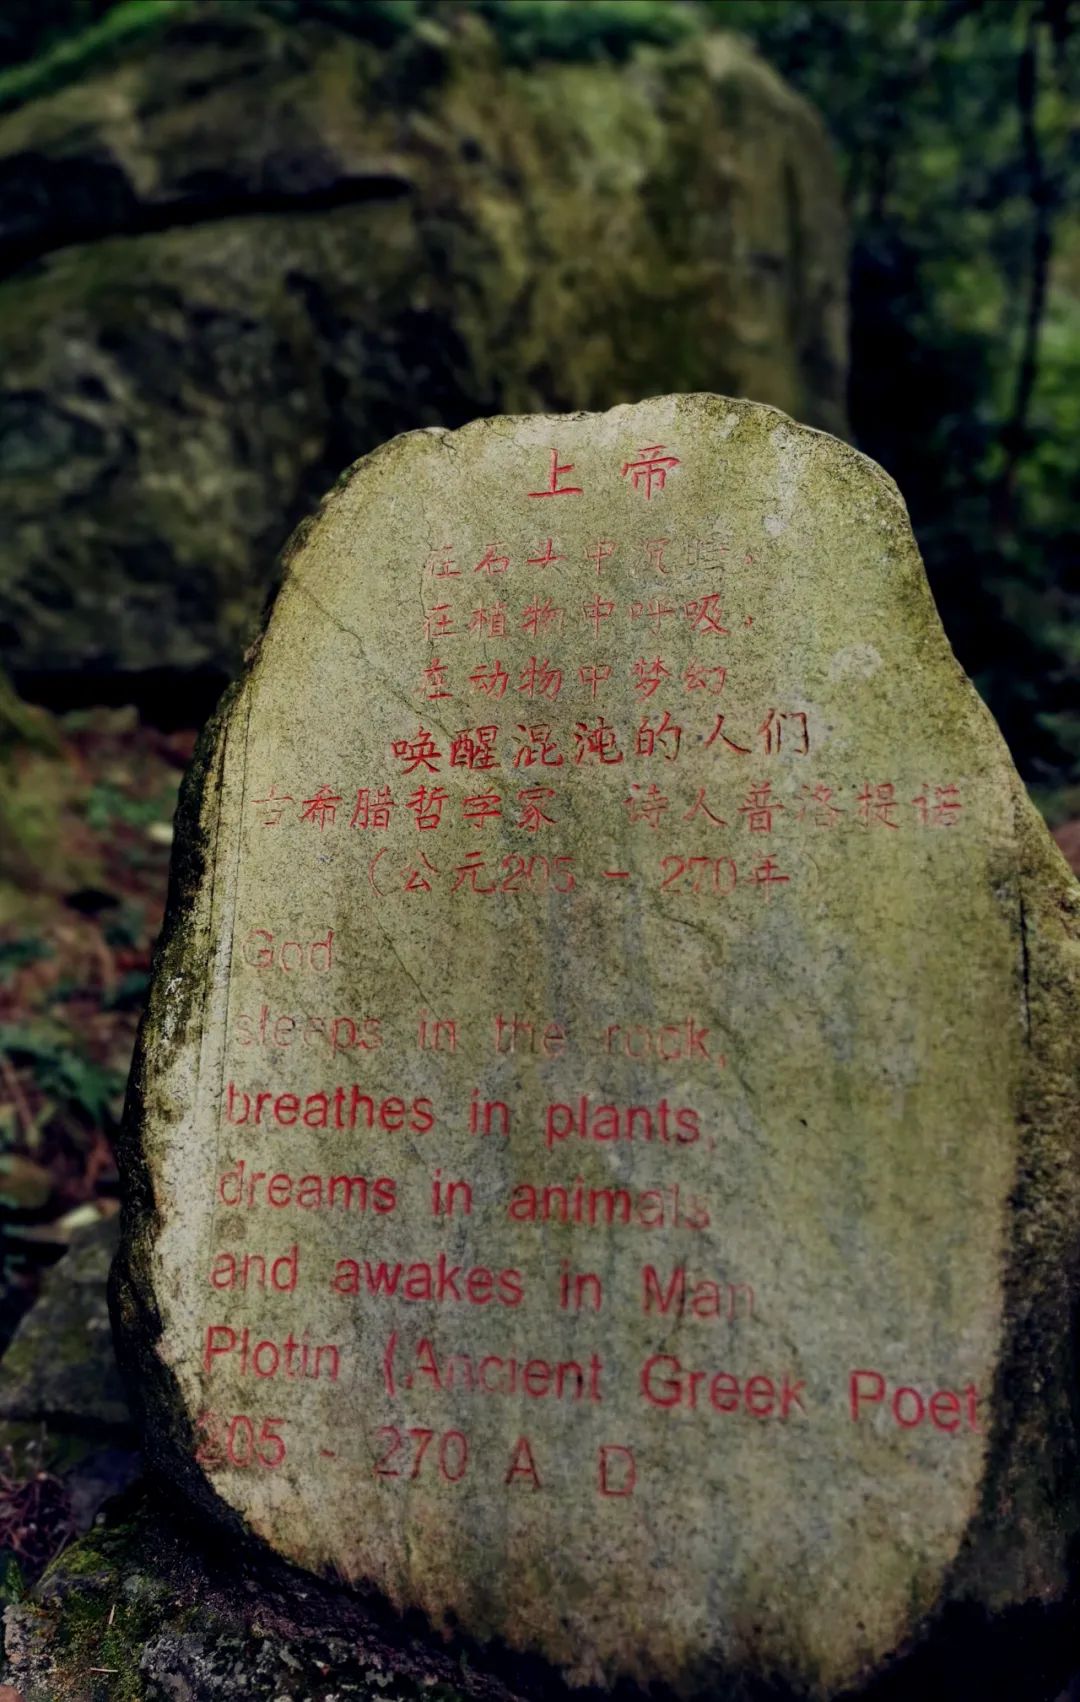 上帝
在石头中沉睡，
在植物中呼吸，
在动物中梦幻
唤醒混沌的人们
古希腊哲学家 诗人普洛提诺
（公元205 - 270年）
God
sleeps in the rock,
breathes in plants,
dreams in animals
and awakes in Man
Plotin (Ancient Greek Poet
205 - 270 A D